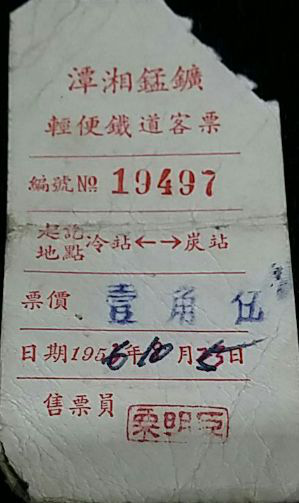 潭湘錳鑛
輕便鐵道客票
編號№ 19497
起訖
地點 冷站←→炭站
票價 壹角伍
日期1956年10月 日
售票員 栗明